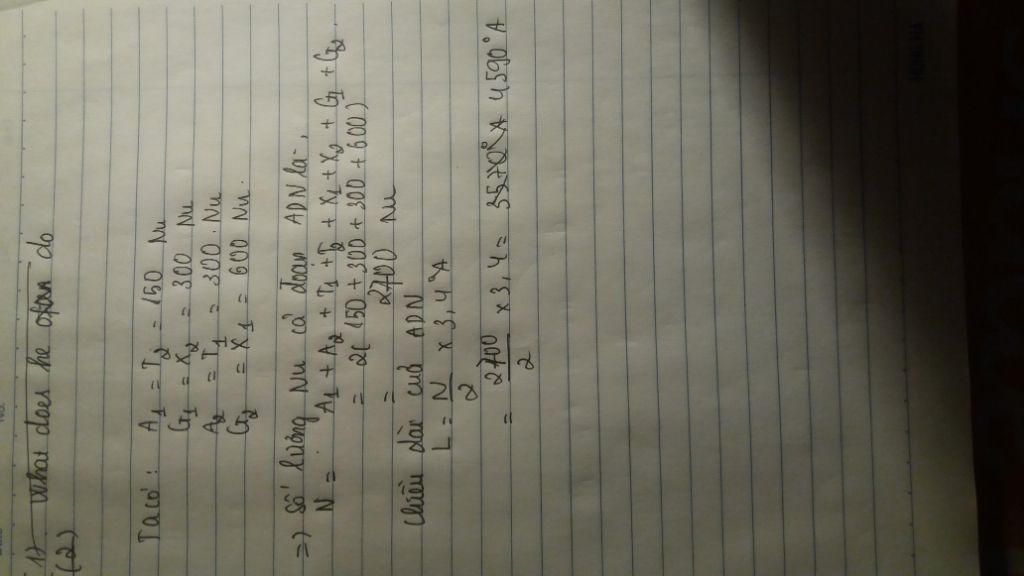 1) What does he often do
(2)
Ta có: A1 = T2 = 150 Nu
G1 = X2 = 300 Nu
A2 = T1 = 300. Nu
G2 = X1 = 600 Nu.
=) Số lượng Nu cả đoạn ADN là:
N = A1 + A2 + T1 + T2 + X1 + X2 + G1 + G2.
= 2( 150 + 300 + 300 + 600)
= 2700 Nu
Chiều dài cuả ADN
L = N/2 x 3,4 °A
= 2700/2 x 3,4 = 3570°A 4590°A